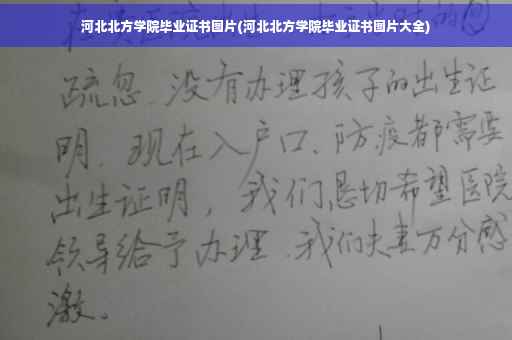 河北北方学院毕业证书图片(河北北方学院毕业证书图片大全)
疏忽、没有办理孩子的出生证
明、现在入户口、防疫都需要
出生证明，我们恳切希望医院
领导给予办理、我们夫妻万分感
激。